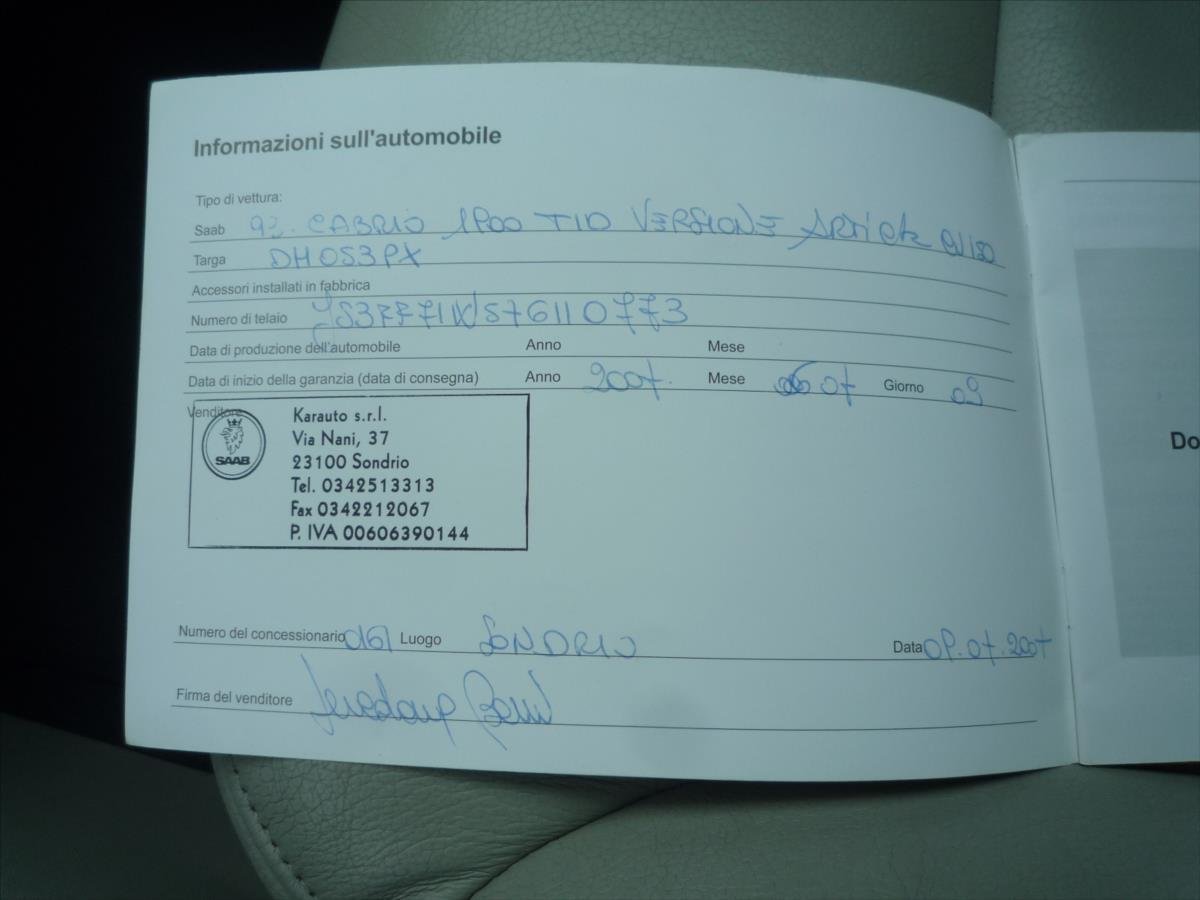 Informazioni sull'automobile
Tipo di vettura:
Saab 93. CABRIO 1900 TID VERSIONE
Targa DH053PX
Accessori installati in fabbrica
Numero di telaio YS3FF71W576110773
Data di produzione dell'automobile Anno Mese
Data di inizio della garanzia (data di consegna) Anno 2007. Mese 07 Giorno 09
Venditore
SAAB
Karauto s.r.l.
Via Nani, 37
23100 Sondrio
Tel. 0342513313
Fax 0342212067
P. IVA 00606390144
Numero del concessionario 061 Luogo SONDRIO
Data 09.07.2007
Firma del venditore
Do